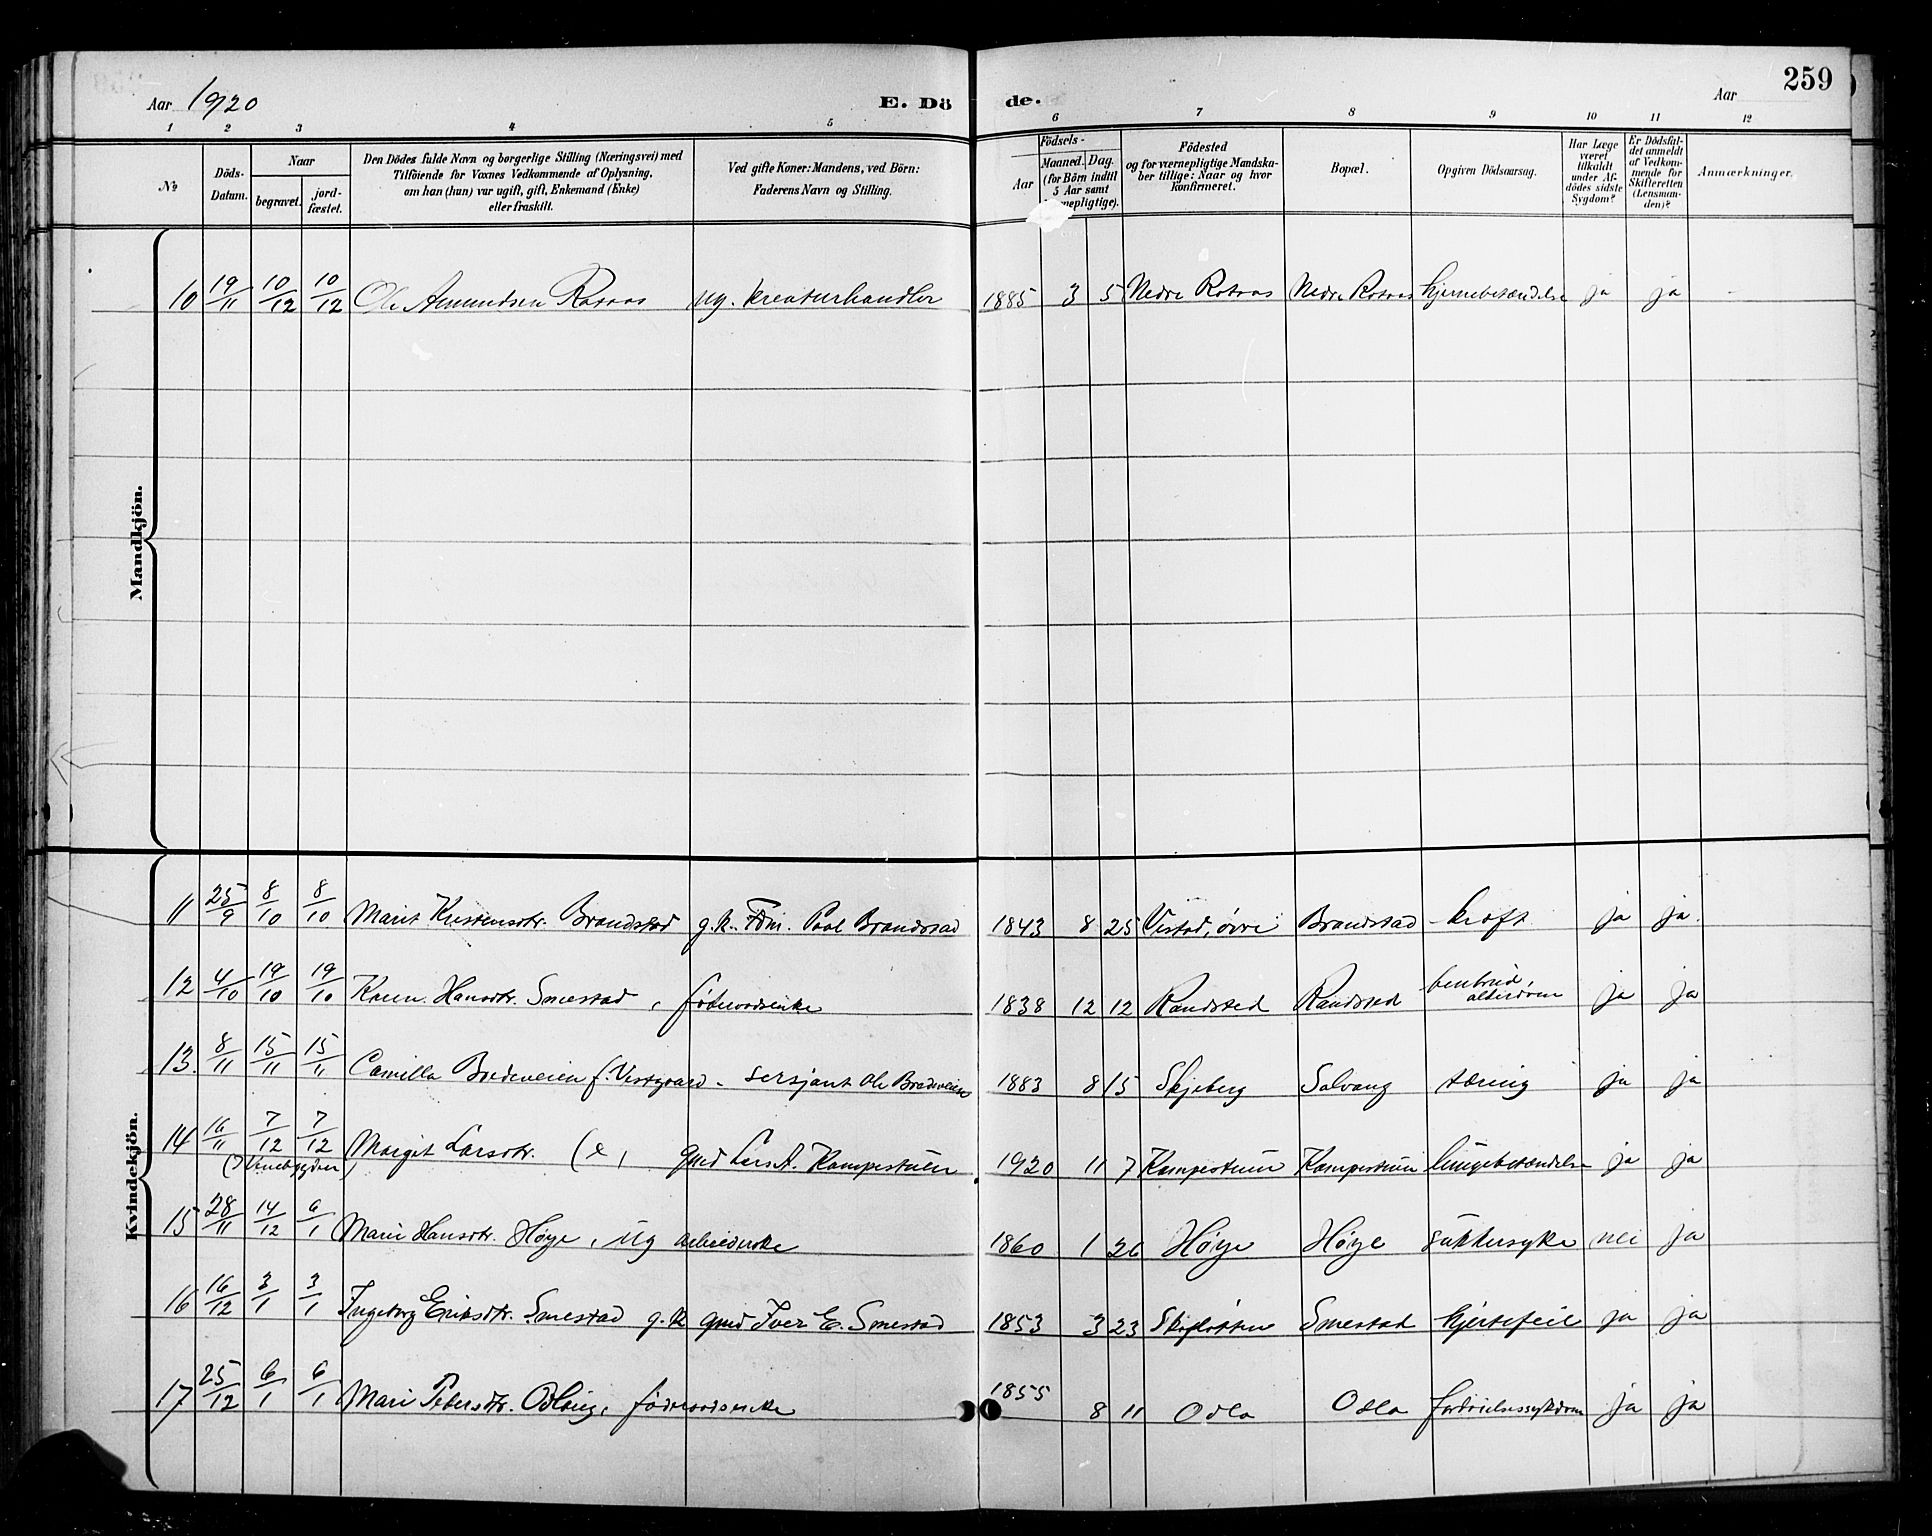 Aar 1920 E. Dö de. Aar 259
1 2 3 4 5 6 7 8 9 10 11 12
No
Döds-Datum.
Naar
begravet.
jord-fæstet.
Den Dödes fulde Navn og borgerlige Stilling (Næringsvei) med
Tilföiende for Voxnes Vedkommende af Oplysning,
om han (hun) var ugift, gift, Enkemand (Enke)
eller fraskilt.
Ved gifte Koner: Mandens, ved Börn:
Faderens Navn og Stilling.
Födsels-
Aar
Maaned. Dag.
(for Börn indtil
5 Aar samt
nepligtige).
Födested
og for værnepligtige Mandska-
ber tillige: Naar og hvor
konfirmeret.
Bopæl.
Opgiven Dödsaarsag.
Har Læge
været
tilkaldt
under Af-
dödes sidste
Sygdom?
Er Dödsfal-
det anmeldt
af Vedkom-
mende for
Skifteretten
(Lensman-
den)?
Anmærkninger.
Mandkjön.
10 19/11 10/12 10/12 Ole Amundsen Rosaas ug. kreaturhandler 1885 3 5 Nedre Rosaas Nedre Rosaas hjernebetændelse ja ja -
Kvindekjön.
11 25/9 8/10 8/10 Marit Kristensdtr. Brandstad g.k. Fdm. Paal Brandstad 1843 8 25 Vestad, øvre Brandstad kræft ja ja.
12 4/10 19/10 19/10 Karen Hansdtr. Smestad, føderaadsenke 1838 12 12 Randsted Randsted benbrud, alderdom ja ja
13. 8/11 15/11 15/11 Camilla Bredeveien f. Vestgaard - sersjant Ole Bredeveien 1883 8 15 Skjeberg Solvang tæring ja ja
14 16/11 7/12 7/12 Margit Larsdtr. (e, gmd Lars A. Kampestuen 1920 11 7 Kampestuen Kampestuen lungebetændelse ja ja
15 28/11 14/12 6/1 Mari Hansdtr. Høye, ug arbeiderske 1860 1 26 Høye Høye sukkersyke nei ja
16 16/12 3/1 3/1 Ingeborg Eriksdtr. Smestad g.k gmd Iver E. Smestad 1853 3 23 Smestad hjertefeil ja ja
17 25/12 6/1 6/1 Mari Pedersdtr. føderaadsenke 1855 8 11 Osla Osla ja ja